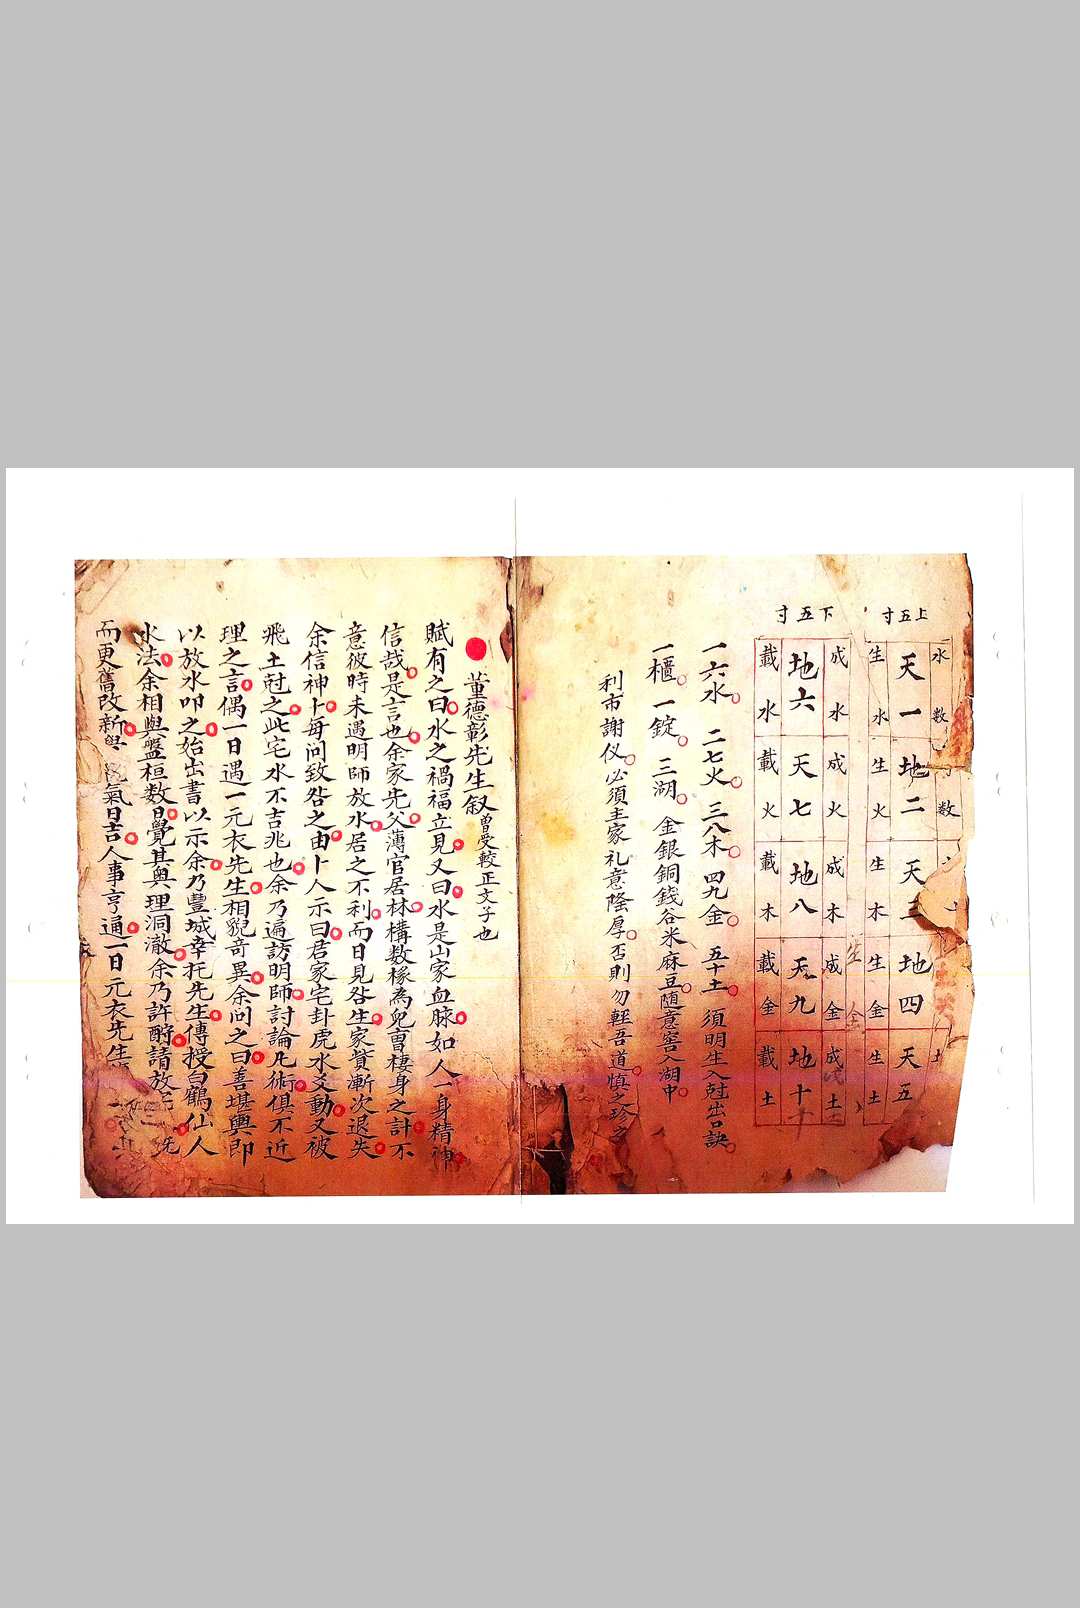 上五寸
下五寸
水数
数
天一 地二 天三 地四 天五
生水 生火 生木 生金 生土
成水 成火 成木 成金 成土
地六 天七 地八 天九 地十
載水 載火 載木 載金 載土
一六水 二七火 三八木 四九金 五十土 須明生入尅出口訣
一櫃 一錠 三湖 金銀銅錢谷米麻豆随意窖入湖中
利市謝仪必須主家礼意隆厚否則勿輕吾道慎之珍之
董德彰先生叙曽受較正文子也
賦有之曰水之禍福立見又曰水是山家血脉如人一身精神
信哉是言也余家先父薄官居林構数椽為兒曺棲身之計不
意彼時未遇明師放水居之不利而日見咎生家貲漸次退失
余信神卜每问致咎之由卜人示曰君家宅卦虎水爻動又被
飛土尅之此宅水不吉兆也余乃遍訪明師討論凡術俱不近
理之言偶一日遇一元衣先生相貎竒異余问之曰善堪輿即
以放水叩之始出書以示余乃豐城幸托先生傳授白鶴仙人
水法余相與盤桓数日覺其與理洞澈余乃許酧請放
而更舊改新 氣日吉人事亨通一日元衣先生